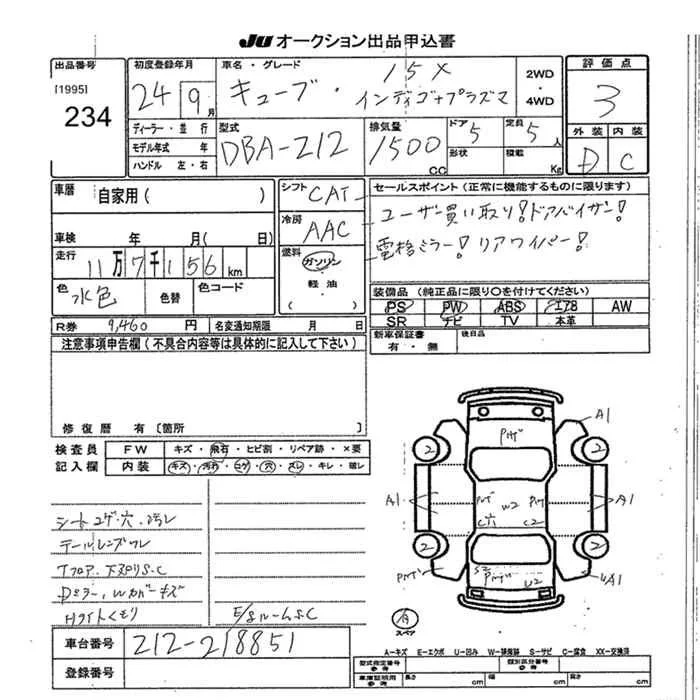 JU オークション出品申込書
出品番号
[1995]
234
初度登録年月
24 9月
車名・グレード
キューブ・ 15X
インディゴ+プラズマ
2WD
・
4WD
評価点
3
外装 内装
D C
ディーラー・並行
モデル年式 年
ハンドル 左・右
型式
DBA-Z12
排気量
1500 CC
ドア 5
形状
定員 5 人
積載 Kg
車歴 自家用( )
車検 年 月( 日)
走行 11万7千156km
色 水色 色替 色コード
シフト CAT
冷房 AAC
燃料 ガソリン
・
軽油
・
( )
セールスポイント(正常に機能するものに限ります)
ユーザー買い取り!ドアバイザー!
電格ミラー!リアワイパー!
装備品(純正品に限り○を付けてください)
PS PW ABS エアB AW
SR ナビ TV 本革
新車保証書
有・無
後日品
R券 9,460 円 名変通知期限 月 日
注意事項申告欄(不具合内容等は具体的に記入して下さい)
修復歴 有〔箇所 〕
検査員 FW キズ・飛石・ヒビ割・リペア跡・×要
記入欄 内装 キズ・汚れ・コゲ・穴・スレ・キレ・破レ
シートコゲ・穴・汚レ
テールレンズワレ
Tフロア、下廻りS.C
Dミラー、Wカバーキズ
Hライトくもり
E/gルームS.C
車台番号 Z12-218851
登録番号
A1
2 2
A1 W2 A1
C穴 C2
2 2
S2
U2
A1
スペア
A-キズ E-エクボ U-凹み W-補修跡 S-サビ C-腐食 XX-交換済
型式指定番号 参考 類別区分番号 参考
車庫証明用 参考 長さ cm 幅 cm 高さ cm